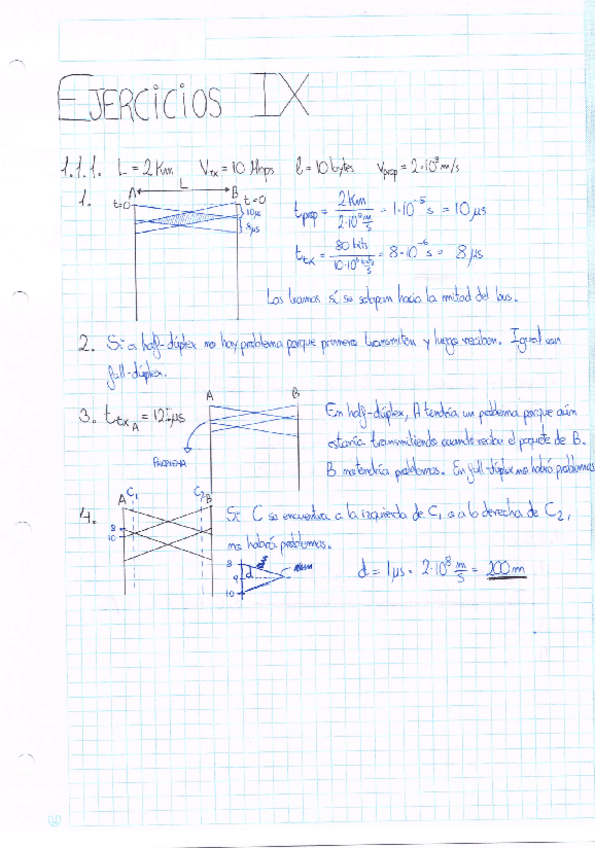 EJERCICIOS IX
1.1.1. L = 2 Km V_TX = 10 Mbps l = 10 bytes V_prop = 2·10⁸ m/s
1. A L B
t=0 t=0
10μs
8μs
t_prop = 2 Km / 2·10⁸ m/s = 1·10⁻⁵ s = 10 μs
t_tx = 80 bits / 10·10⁶ bits/s = 8·10⁻⁶ s = 8 μs
Las tramas sí se solapan hacia la mitad del bus.
2. Si es half-dúplex no hay problema porque primero transmiten y luego reciben. Igual con
full-dúplex.
3. t_txA = 12 μs
A B
PROBLEMA
En half-dúplex, A tendría un problema porque aún
estaría transmitiendo cuando reciba el paquete de B.
B no tendría problemas. En full-dúplex no habrá problemas
4. A C₁ C₂ B
8
10
Si C se encuentra a la izquierda de C₁ o a la derecha de C₂,
no habrá problemas.
8
9 d
10
d = 1μs · 2·10⁸ m/s = 200 m